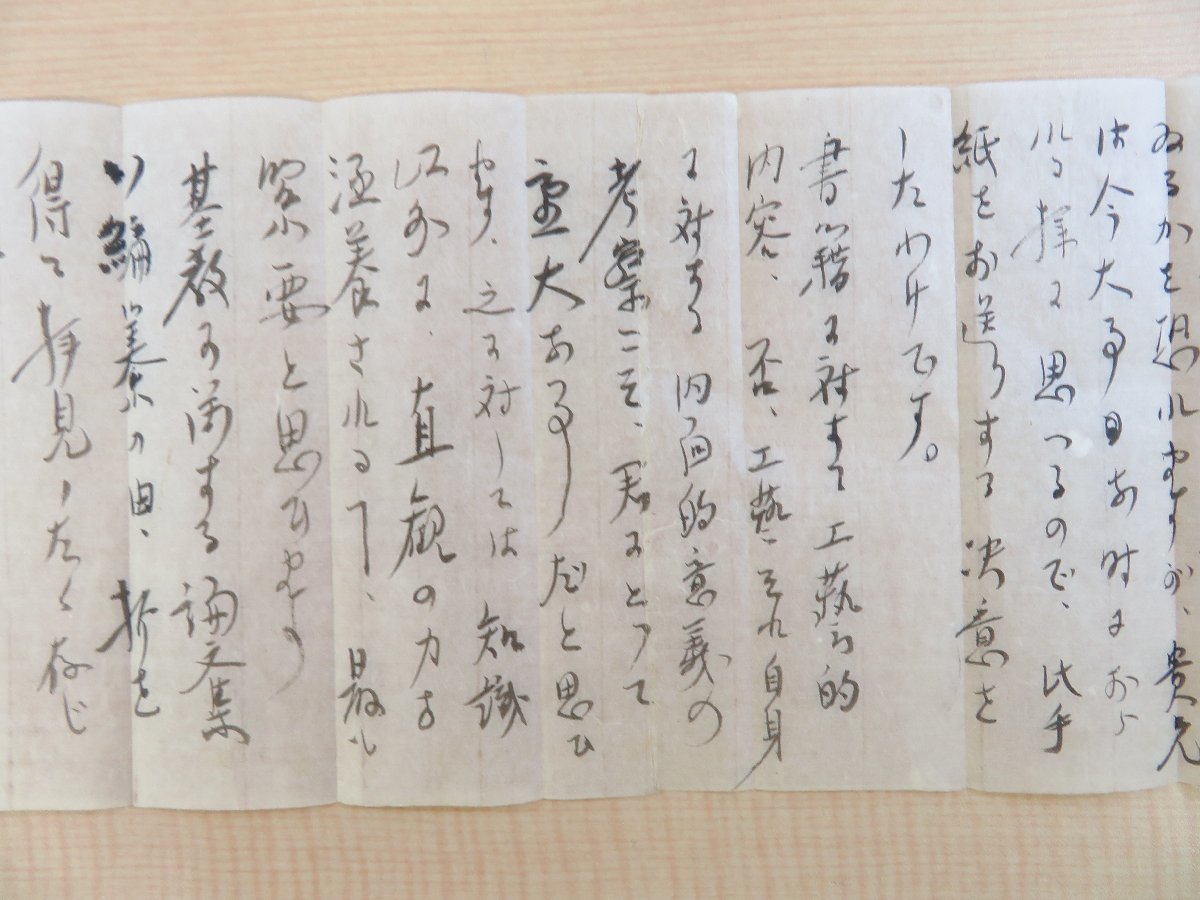 なるかを恐れますが、貴兄
は今大事な時におら
れる様に思へるので、此手
紙をお送りする決意を
したわけです。
書籍に対する工藝的
内容、否、工藝それ自身
に対する内面的意義の
考察こそ、君にとって
重大なる事だと思ひ
ます、之に対しては知識
以外に、直観の力を
涵養される事、最も
緊要と思ひます
基教に関する論文集
御編纂の由、折を
得て拝見したく存じ